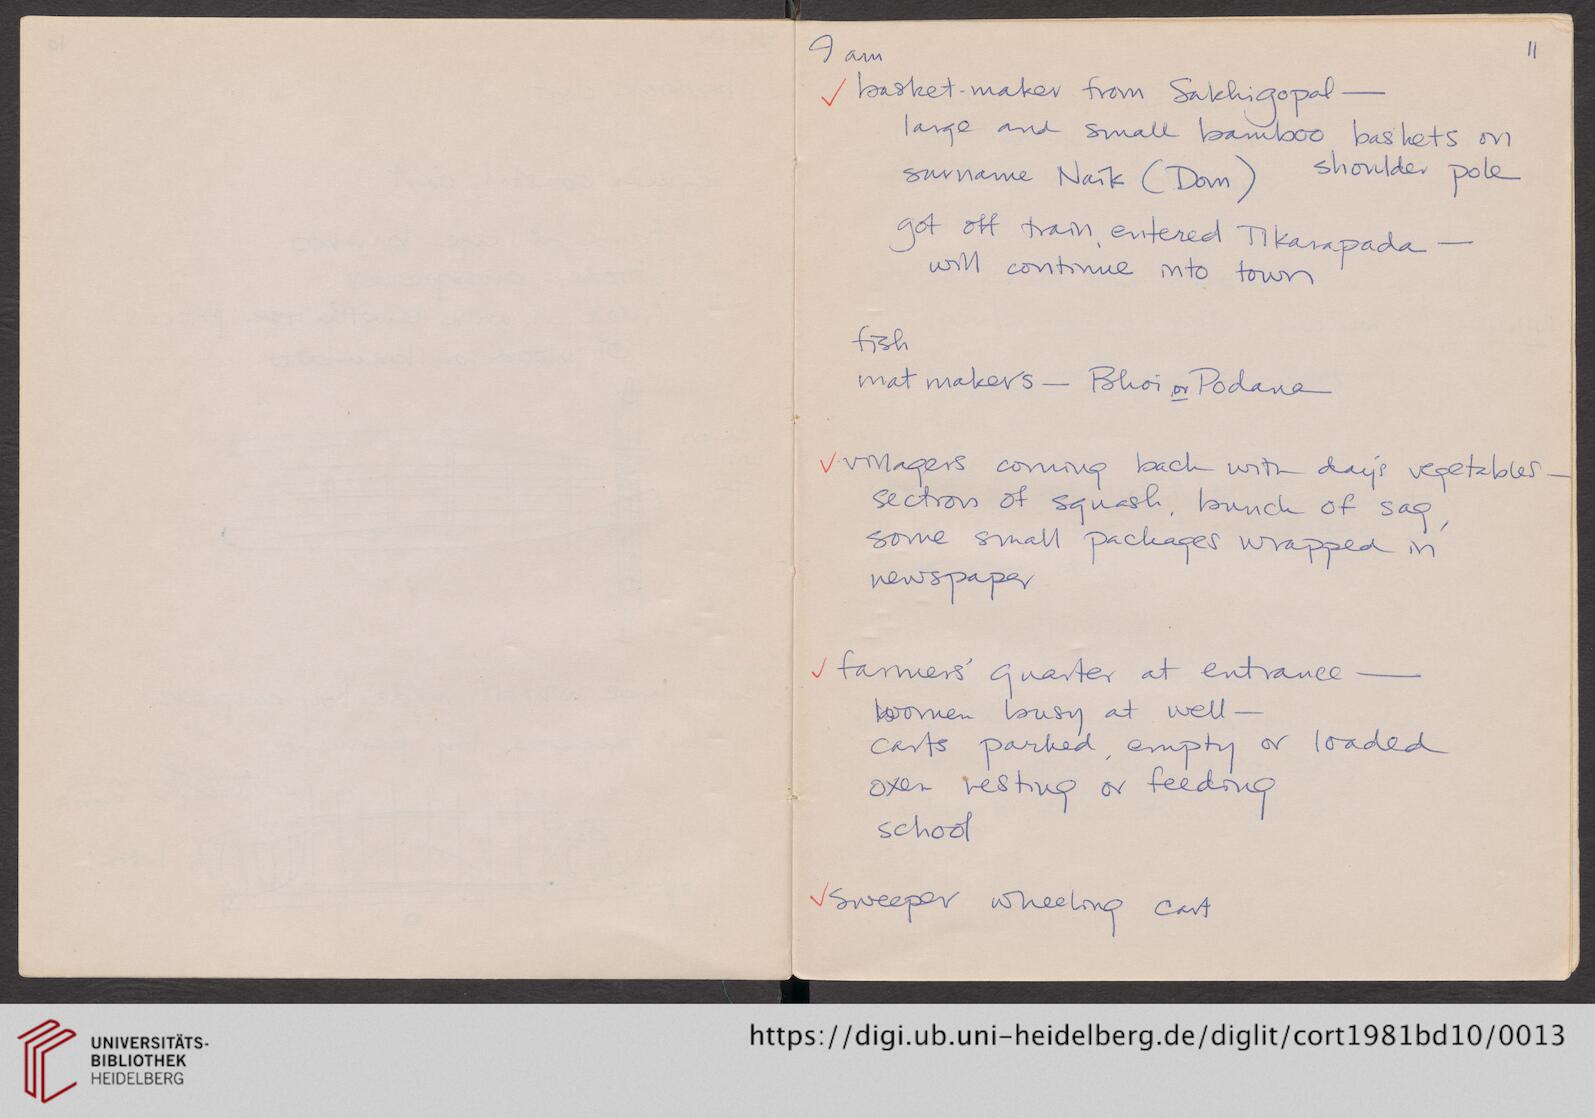 9 am
11
✓ basket-maker from Sakhigopal —
large and small bamboo baskets on
shoulder pole
surname Naik (Dom)
got off train, entered Tikarapada —
will continue into town
fish
mat makers — Bhoi or Podana
✓ villagers coming back with day's vegetables —
section of squash, bunch of sag,
some small packages wrapped in
newspaper
✓ farmers' quarter at entrance —
women busy at well —
carts parked, empty or loaded
oxen resting or feeding
school
✓ sweeper wheeling cart
UNIVERSITÄTS-
BIBLIOTHEK
HEIDELBERG
https://digi.ub.uni-heidelberg.de/diglit/cort1981bd10/0013